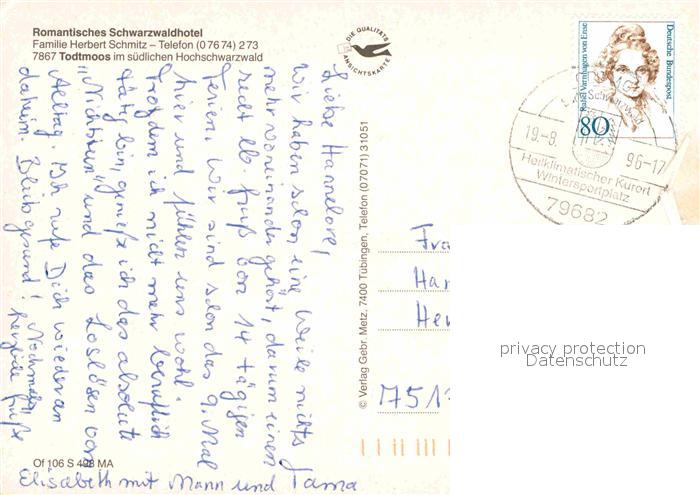 Romantisches Schwarzwaldhotel
Familie Herbert Schmitz – Telefon (0 76 74) 2 73
7867 Todtmoos im südlichen Hochschwarzwald
DIE QUALITÄTS
ANSICHTSKARTE
Rahel Varnhagen von Ense
Deutsche Bundespost
80
Schwarzwald
19.-8. 96-17
Heilklimatischer Kurort
Wintersportplatz
79682
Liebe Hannelore,
wir haben schon eine Weile nichts
mehr voneinander gehört, darum einen
recht lb. Gruß von 14 tägigen
Ferien. Wir sind schon das 9. Mal
hier und fühlen uns wohl.
Trotzdem ich nicht mehr beruflich
tätig bin, genieße ich das absolute
"Nichtstun" und das Loslösen vom
Alltag. Ich rufe Dich wieder an
daheim. Bleib gesund! Nochmals
herzliche Grüße
Elisabeth mit Mann und Tama
© Verlag Gebr. Metz, 7400 Tübingen, Telefon (07071) 31051
Fra
Han
Her
7513
privacy protection
Datenschutz
Of 106 S 498 MA